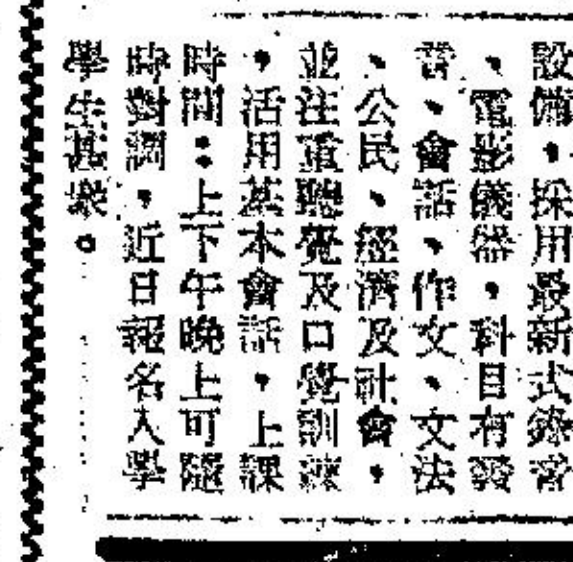 設備，採用最新式錄音
、電影儀器，科目有發
音、會話、作文、文法
、公民、經濟及社會，
並注重聽覺及口覺訓練
，活用基本會話，上課
時間：上下午晚上可隨
時對調，近日報名入學
學生甚衆。